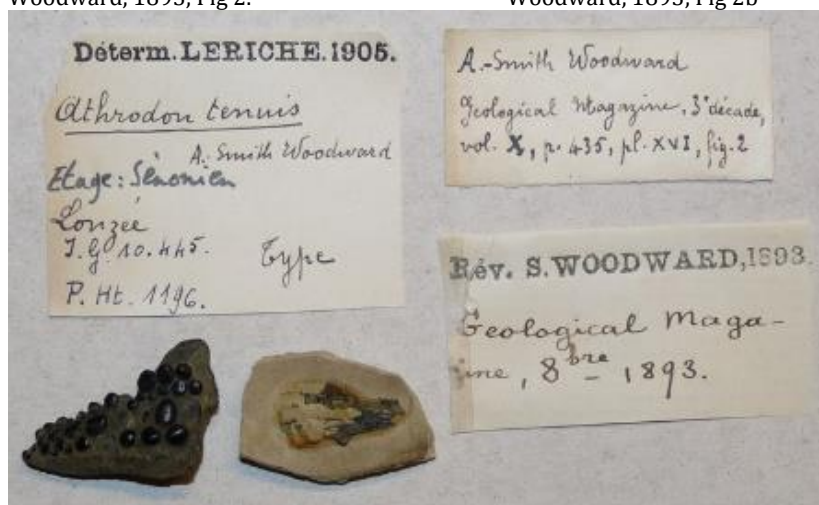 Woodward, 1893, Fig 2.
Woodward, 1893, Fig 2b
Déterm. LERICHE. 1905.
Athrodon tenuis
A. Smith Woodward
Etage: Sénonien
Lonzée
I.G. 10.445.
Type
P. Ht. 1196.
A.-Smith Woodward
Geological Magazine, 3e décade,
vol. X, p. 435, pl. XVI, fig. 2
Rév. S. WOODWARD, 1893.
Geological Maga-
ine, 8bre 1893.